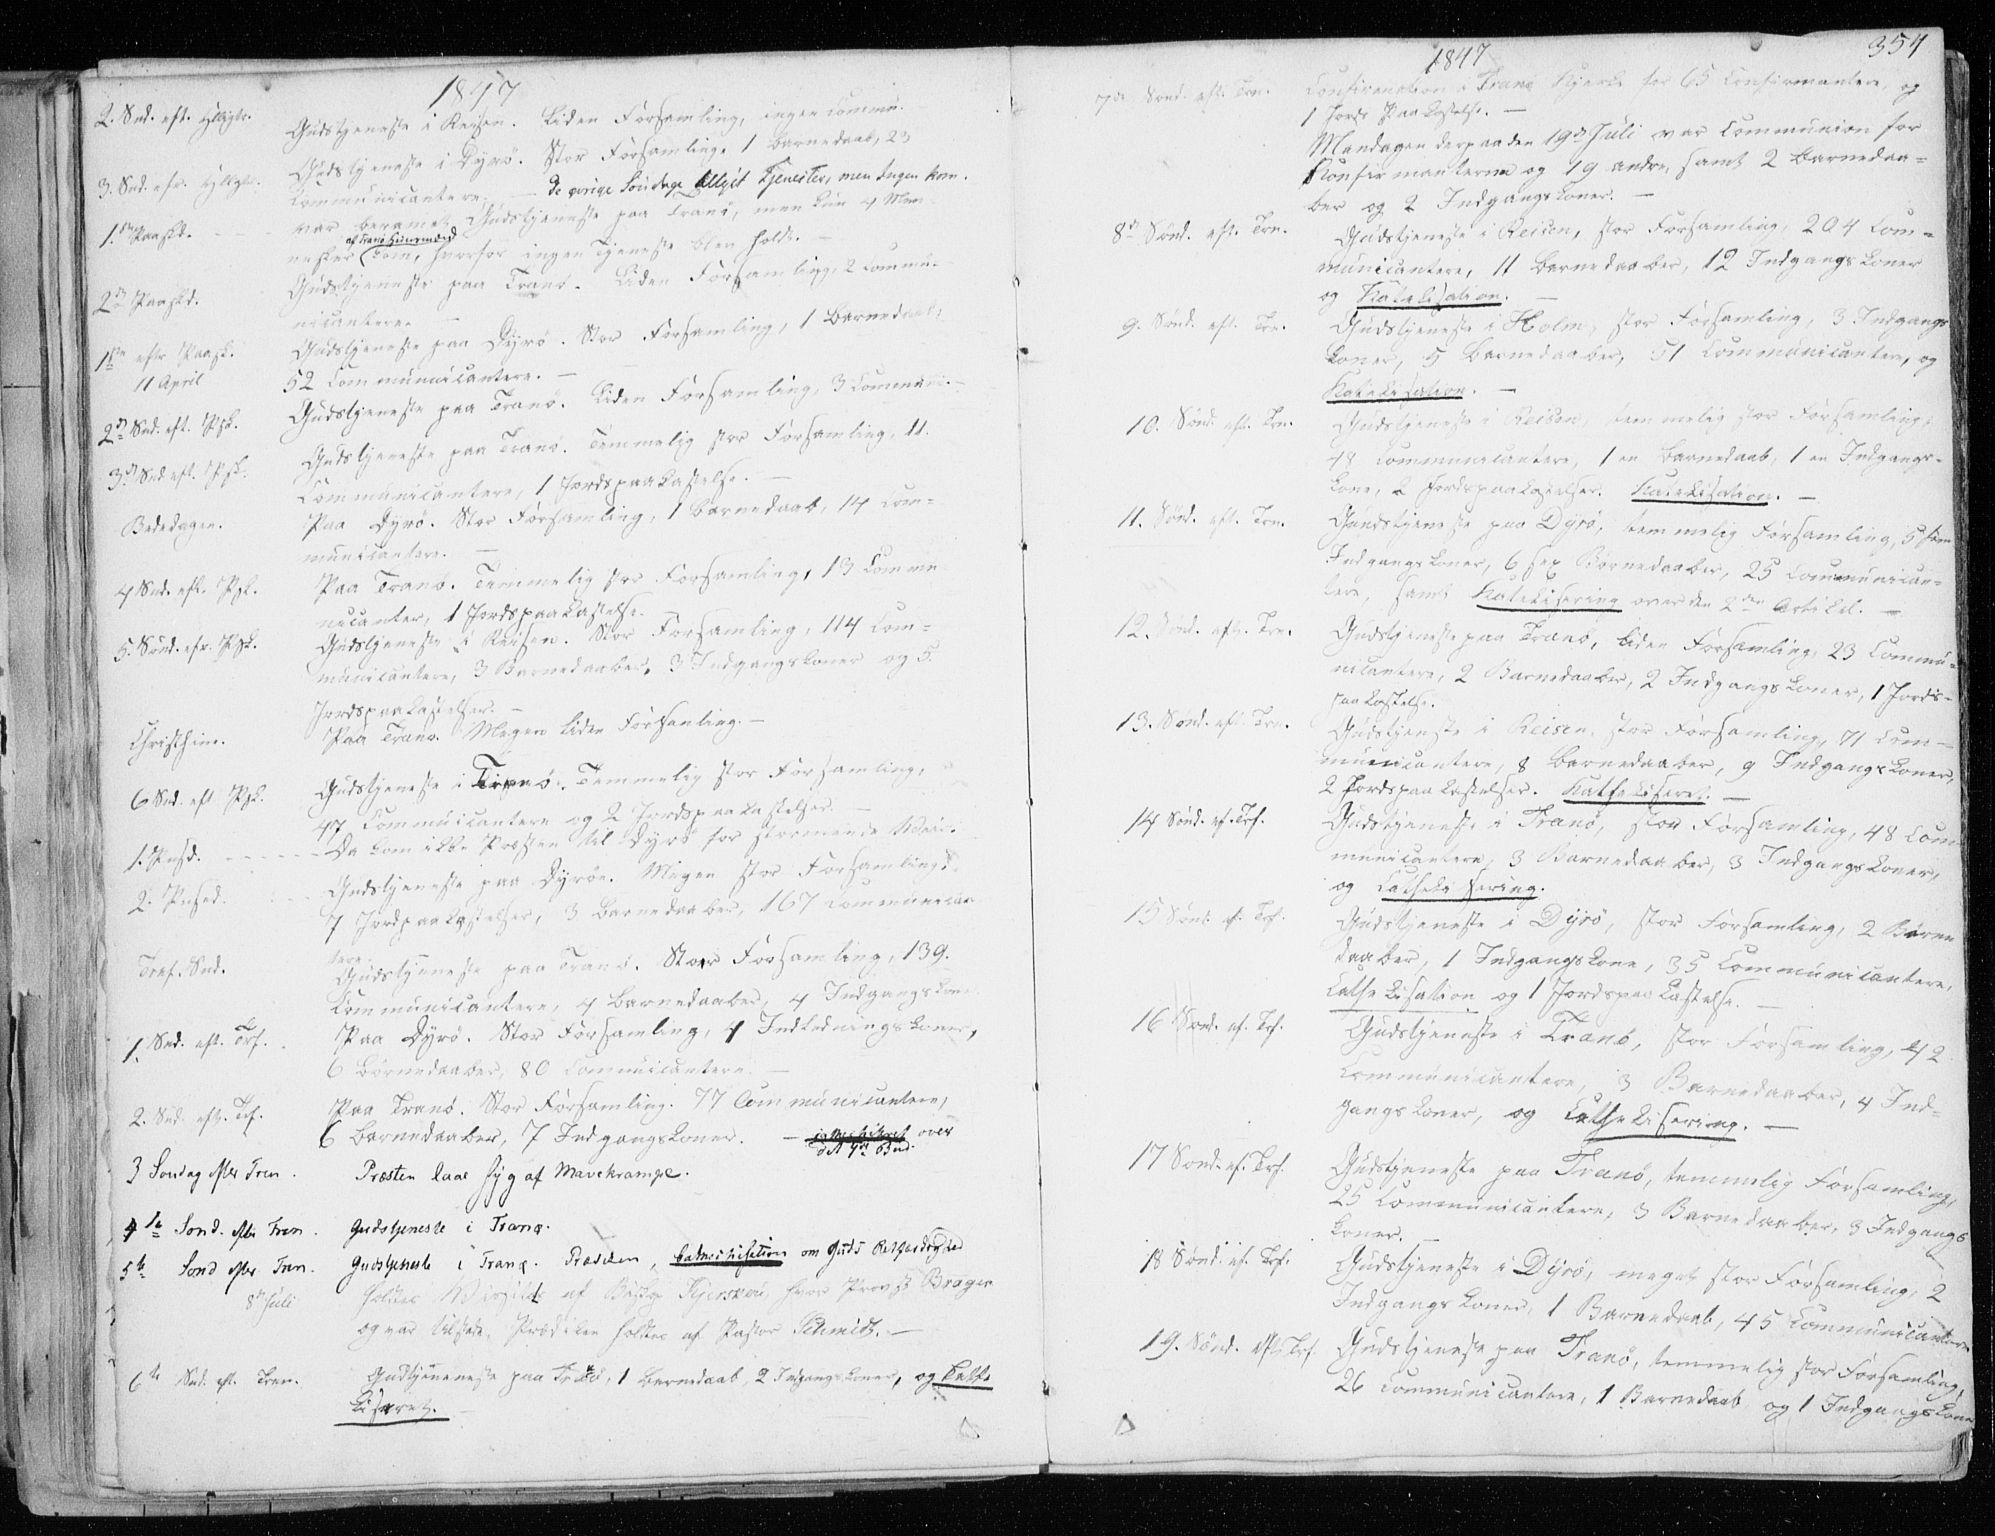 1847
2. Snd. eft. Hlligtr. Gudstjeneste i Reisen. Liden Forsamling, ingen Commu.
Gudstjeneste i Dyrö. Stor Forsamling, 1 Barnedaab, 23
3. Snd. eft. Hlligtr. Communicantere. — De øvrige Søndage tillyst Tjenester, men Ingen kom.
1ste Paaskd. var berammet Gudstjeneste paa Tranö, men kun 4 Men-
af Tranö Huusmænd
nesker kom, hvorfor ingen Tjeneste blev holdt. —
2den Paaskd. Gudstjeneste paa Tranö. Liden Forsamling, 2 Commu-
nicantere. —
1ste efter Paask. Gudstjeneste paa Dyrö. Stor Forsamling, 1 Barnedaab,
11 April 52 Communicantere. —
2den Snd. eft. Psk. Gudstjeneste paa Tranö. Liden Forsamling, 3 Communi. —
3die Snd. eft. Psk. Gudstjeneste paa Tranö. Temmelig stor Forsamling, 11.
Communicantere, 1 Jordspaakastelse. —
Bededagen. Paa Dyrö. Stor Forsamling, 1 Barnedaab, 14 Com-
municantere. —
4 Snd. eft. Psk. Paa Tranö. Temmelig stor Forsamling, 13 Commu-
nicanter, 1 Jordspaakastelse.
5. Sönd. eft. Psk. Gudstjeneste i Reisen. Stor Forsamling, 114 Com-
municantere, 3 Barnedaaber, 3 Indgangskoner og 5.
Jordspaakastelser. —
Christhim. Paa Tranö. Megen liden Forsamling. —
6 Snd. eft Psk. Gudstjeneste i Tranö. Temmelig stor Forsamling,
47 Communicantere og 2 Jordspaakastelser. —
1. Pnsd. Da kom ikke Præsten til Dyrö for stormende Veir.
2. Pnsd. Gudstjeneste paa Dyröe. Megen stor Forsamling.
7 Jordpaakastelser, 3 Barnedaaber, 167 Communican-
tere.
Tref. Snd. Gudstjeneste paa Tranö. Stor Forsamling, 139.
Communicantere, 4 Barnedaaber, 4 Indgangskoner
1. Snd. eft. Trf. Paa Dyrö. Stor Forsamling, 4 Indledningskoner,
6 Börnedaaber, 80 Communicantere. —
2. Snd. eft. Trf. Paa Tranö. Stor Forsamling. 77 Communicantere,
6 Barnedaaber, 7 Indgangskoner. — over
det 4de Bud.
3 Søndag efter Tren. Præsten laae syg af Mavekrampe.
4de Sønd. efter Tren. Gudstjeneste i Tranø.
5te Sønd efter Tren. Gudstjeneste i Tranø. Prædiken, Catechisation om Guds Retfærdighed
8de Juli holdtes Visitats af Biskop Kjerschow, hvor Provst Brager
og var tilstede. Prædiken holdtes af Pastor Schmidt. —
6te Snd. eft. Tren. Gudstjeneneste paa Tranö, 1 Barnedaab, 2 Indgangskoner, og Cathe
kiseret. —
354
1847
7de Sönd. eft. Trn. Confirmation i Tranø Kjerke for 65 Confirmantere, og
1 Jords Paakastelse. —
Mandagen derpaa den 19de Juli var Communion for
Konfirmanterne og 19 andre, samt 2 Barnedaa-
ber og 2 Indgangskoner. —
8de Sönd. eft. Trn. Gudstjeneste i Reisen, stor Forsamling, 204 Com-
municantere, 11 Barnedaaber, 12 Indgangskoner
og Katekisation. —
9. Sönd. eft. Trn. Gudstjeneste i Holm, stor Forsamling, 3 Indgangs
koner, 5 Barnedaaber, 51 Communicantere, og
Katekisation. —
10. Sönd. eft. Trn. Gudstjeneste i Reisen, temmelig stor Forsamling,
48 Communicantere, 1 en Barnedaab, 1 en Indgangs-
kone, 2 Jordspaakastelser. Katekisation. —
11. Sönd. eft. Trn. Gudstjeneste paa Dyrö, temmelig Forsamling, 5 fem
Indgangskoner, 6 sex Börnedaaber, 25 Communican-
tere, samt Katekisering over den 2den Artikel. —
12. Sönd. eft. Trn. Gudstjeneste paa Tranö, liden Forsamling, 23 Commu-
nicantere, 2 Barnedaaber, 2 Indgangskoner, 1 Jords-
paakastelse.
13. Sönd. eft. Trn. Gudstjeneste i Reisen, stor Forsamling, 71 Com-
municantere, 8 Barnedaaber, 9 Indgangskoner,
2 Jordspaakastelser. Kathekiseret. —
14 Sönd. ef. Trf. Gudstjeneste i Tranö, stor Forsamling, 48 Com-
municantere, 3 Barnedaaber, 3 Indgangskoner,
og Cathekisering.
15 Sönd. ef. Trf. Gudstjeneste i Dyrö, stor Forsamling, 2 Börne
daaber, 1 Indgangskone, 35 Communicantere,
Cathekisation og 1 Jordspaakastelse. —
16 Sönd. ef. Trf. Gudstjeneste i Tranö, stor Forsamling, 42
Communicantere, 3 Barnedaaber, 4 Ind-
gangskoner, og Cathekisering. —
17 Sönd. ef. Trf. Gudstjeneste paa Tranö, temmelig Forsamling,
25 Communicantere, 3 Barnedaaber, 3 Indgangs
koner. —
18 Sönd. ef. Trf. Gudstjeneste i Dyrö, meget stor Forsamling, 2
Indgangskoner, 1 Barnedaab, 45 Communicantere
19. Sönd. eft. Trf. Gudstjeneste paa Tranö, temmelig stor Forsamling,
26 Communicantere, 1 Barnedaab og 1 Indgangskone